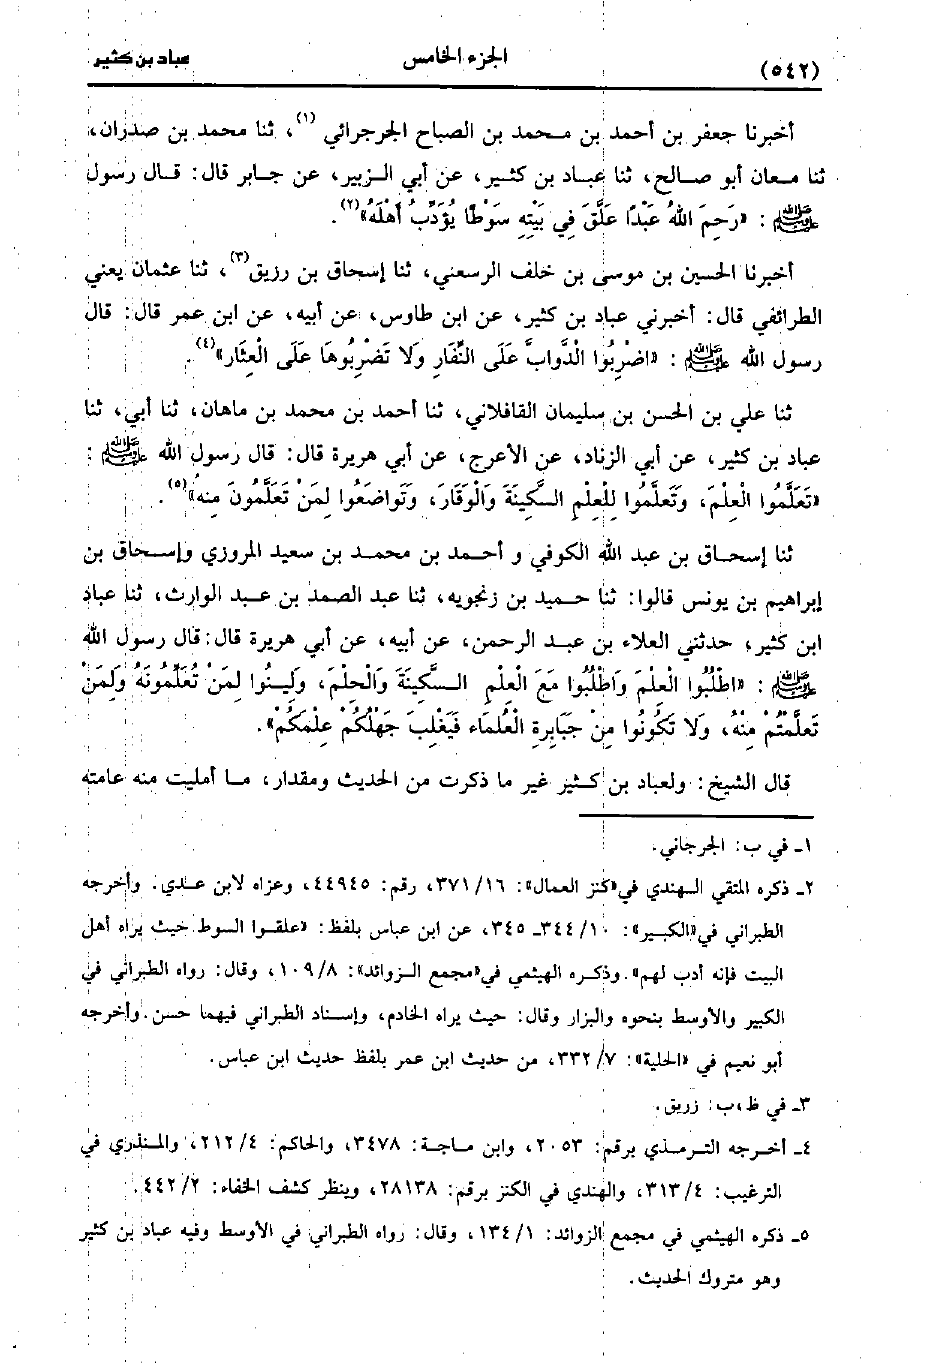 (٥٤٢) الجزء الخامس عباد بن كثير
أخبرنا جعفر بن أحمد بن محمد بن الصباح الجرجرائي (١)، ثنا محمد بن صدران،
ثنا معان أبو صالح، ثنا عباد بن كثير، عن أبي الزبير، عن جابر قال: قال رسول
ﷺ: «رَحِمَ اللهُ عَبْدًا عَلَّقَ فِي بَيْتِهِ سَوْطًا يُؤَدِّبُ أَهْلَهُ»(٢).
أخبرنا الحسين بن موسى بن خلف الرسعني، ثنا إسحاق بن رزيق(٣)، ثنا عثمان يعني
الطرائفي قال: أخبرني عباد بن كثير، عن ابن طاوس، عن أبيه، عن ابن عمر قال: قال
رسول الله ﷺ: «اضْرِبُوا الْدَّوابَّ عَلَى النِّفَارِ وَلَا تَضْرِبُوهَا عَلَى الْعِثَارِ»(٤).
ثنا علي بن الحسن بن سليمان القافلاني، ثنا أحمد بن محمد بن ماهان، ثنا أبي، ثنا
عباد بن كثير، عن أبي الزناد، عن الأعرج، عن أبي هريرة قال: قال رسول الله ﷺ:
«تَعَلَّمُوا الْعِلْمَ، وَتَعَلَّمُوا لِلْعِلْمِ السَّكِينَةَ وَالْوَقَارَ، وَتَواضَعُوا لِمَنْ تَعَلَّمُونَ مِنه»(٥).
ثنا إسحاق بن عبد الله الكوفي و أحمد بن محمد بن سعيد المروزي وإسحاق بن
إبراهيم بن يونس قالوا: ثنا حميد بن زنجويه، ثنا عبد الصمد بن عبد الوارث، ثنا عباد
ابن كثير، حدثني العلاء بن عبد الرحمن، عن أبيه، عن أبي هريرة قال: قال رسول الله
ﷺ: «اطْلُبُوا الْعِلْمَ وَاطْلُبُوا مَعَ الْعِلْمِ السَّكِينَةَ وَالْحِلْمَ، وَلِينُوا لِمَنْ تُعَلِّمُونَهُ وَلِمَنْ
تَعلَّمْتُمْ مِنْهُ، وَلَا تَكُونُوا مِنْ جَبَابِرةِ الْعُلَمَاءِ فَيَغْلِبَ جَهْلُكُمْ عِلْمَكُمْ».
قال الشيخ: ولعباد بن كثير غير ما ذكرت من الحديث ومقدار، ما أمليت منه عامته
١ـ في ب: الجرجاني.
٢ـ ذكره المتقي الهندي في«كنز العمال»: ٣٧١/١٦، رقم: ٤٤٩٤٥، وعزاه لابن عدي. وأخرجه
الطبراني في«الكبير»: ٣٤٤/١٠ـ ٣٤٥، عن ابن عباس بلفظ: «علقوا السوط حيث يراه أهل
البيت فإنه أدب لهم».وذكره الهيثمي في«مجمع الزوائد»: ١٠٩/٨، وقال: رواه الطبراني في
الكبير والأوسط بنحوه والبزار وقال: حيث يراه الخادم، وإسناد الطبراني فيهما حسن. وأخرجه
أبو نعيم في «الحلية»: ٣٣٢/٧، من حديث ابن عمر بلفظ حديث ابن عباس.
٣ـ في ظ،ب: زريق.
٤ـ أخرجه الترمذي برقم: ٢٠٥٣، وابن ماجة: ٣٤٧٨، والحاكم: ٢١٢/٤، والمنذري في
الترغيب: ٣١٣/٤، والهندي في الكنز برقم: ٢٨١٣٨، وينظر كشف الخفاء: ٤٤٢/٢.
٥ـ ذكره الهيثمي في مجمع الزوائد: ١٣٤/١، وقال: رواه الطبراني في الأوسط وفيه عباد بن كثير
وهو متروك الحديث.